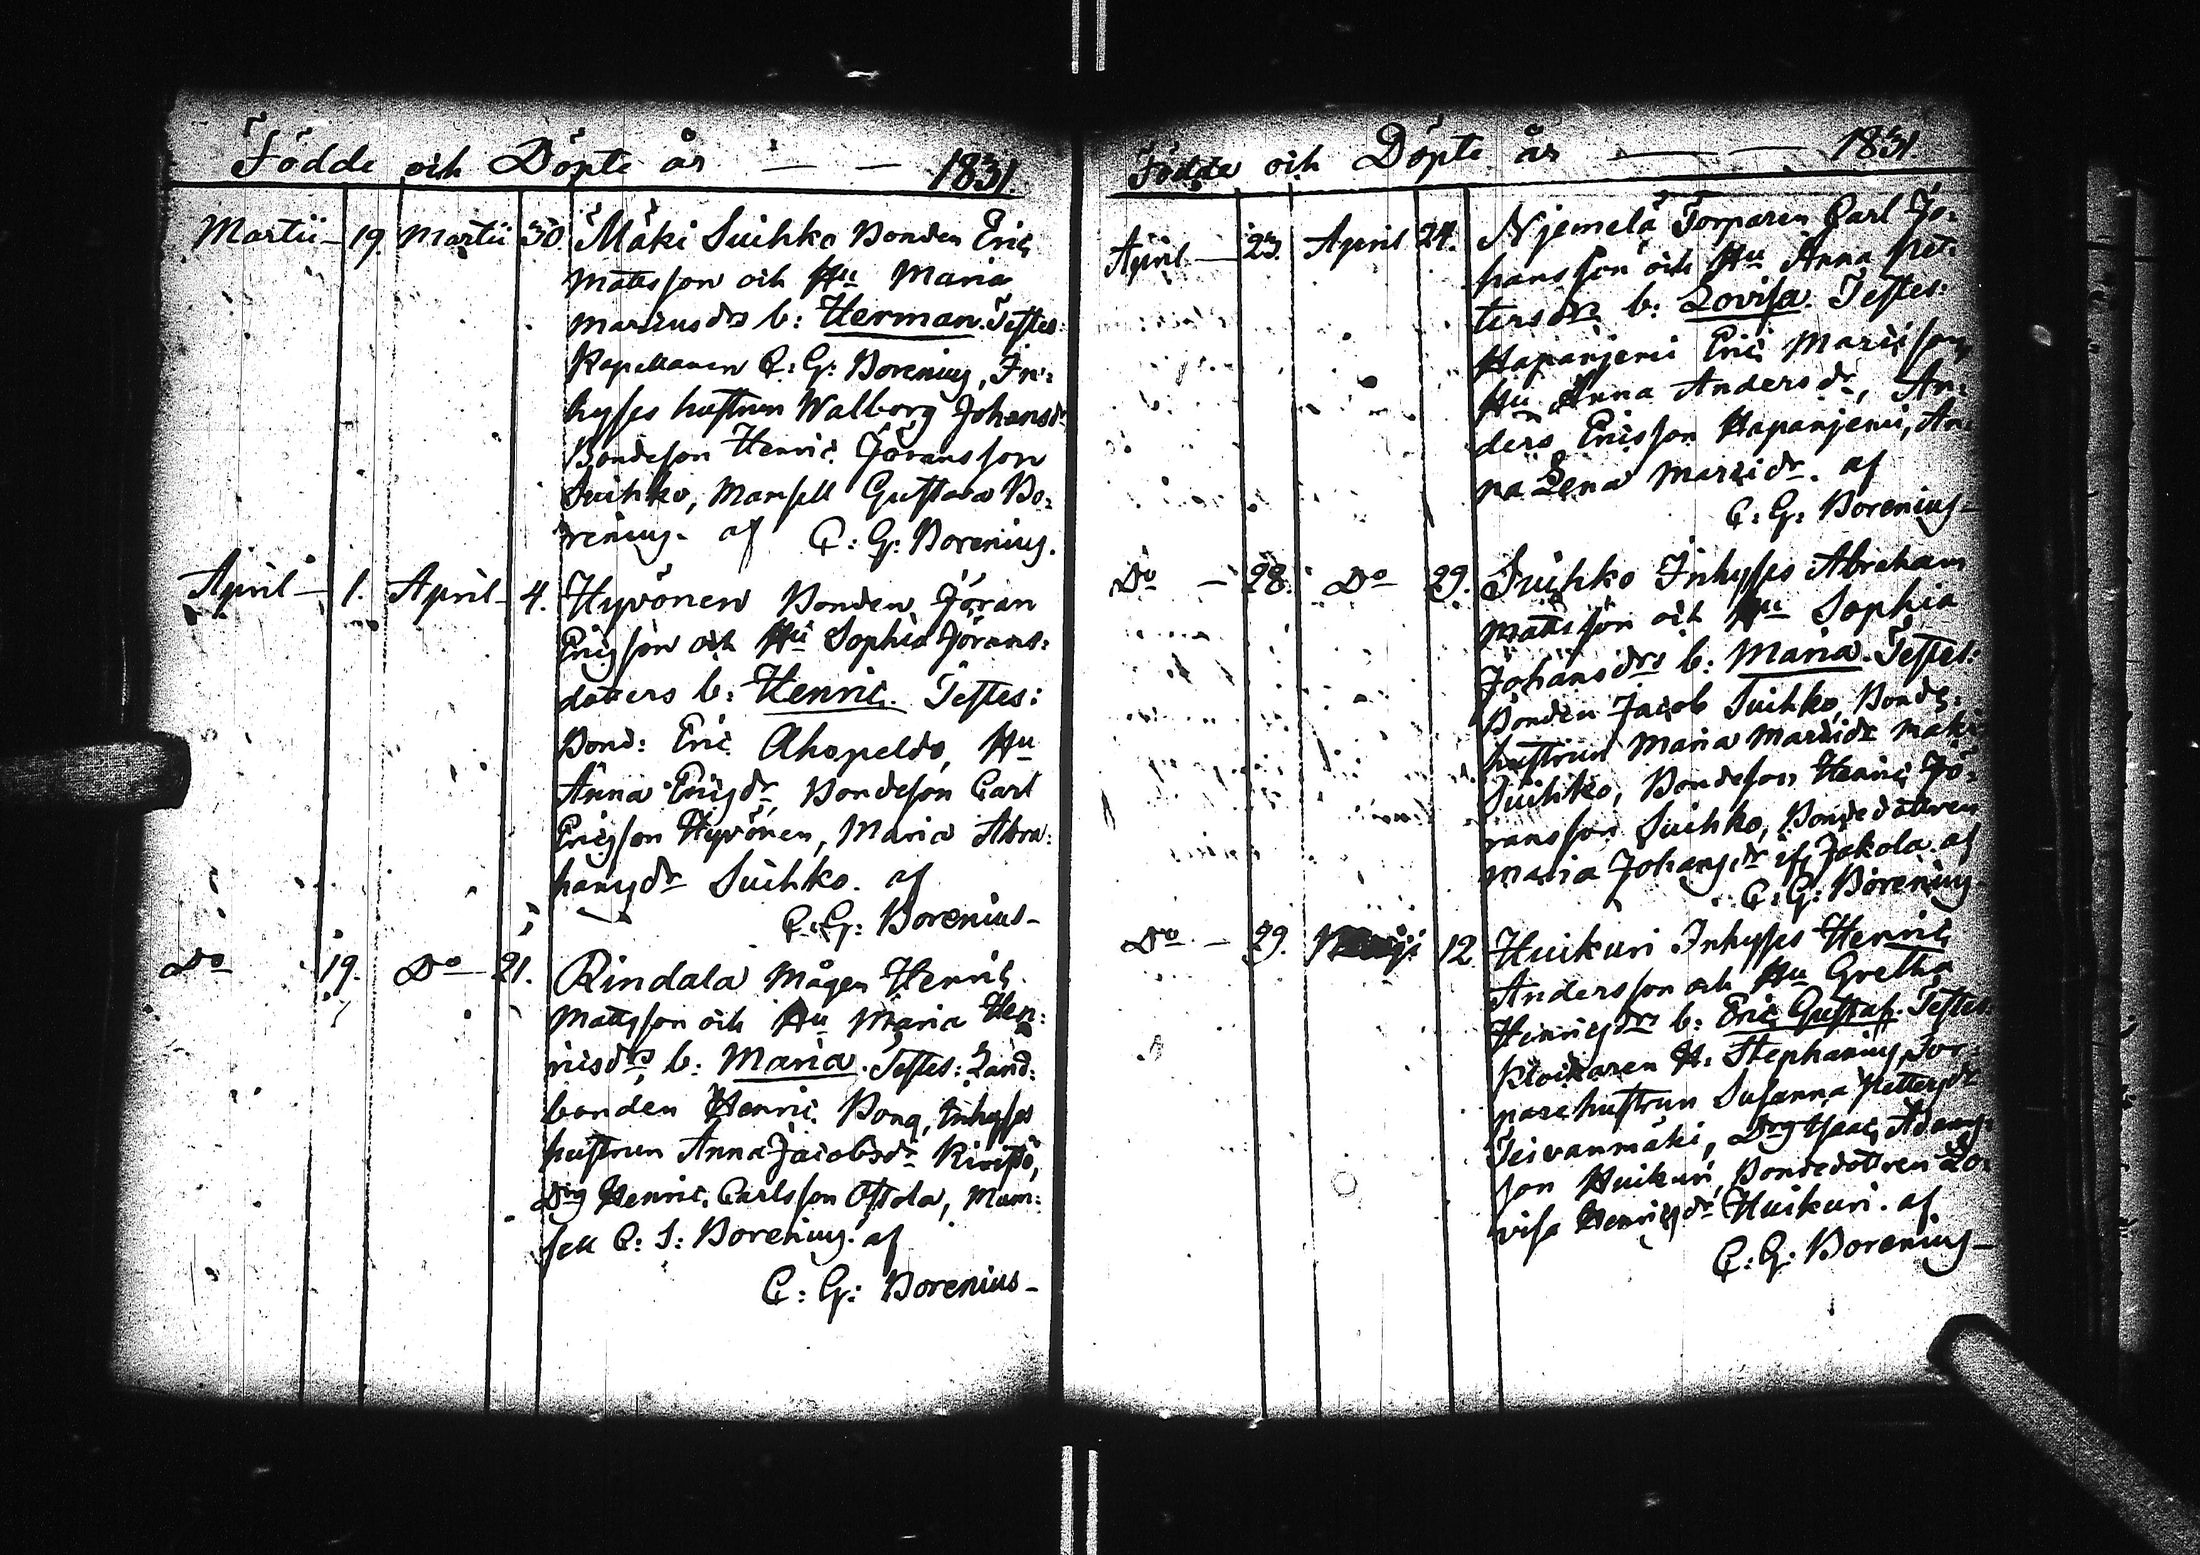 Födde och Döpte år — — 1831.
Martii – 19. Martii 30. Mäki Suihko Bonden Eric
Mattsson och Hu Maria
Marcusdrs b: Herman. Testes:
Kapellanen C: G: Borenius, In:
hyses hustrun Walborg Johansdr
Bondeson Henric Göransson
Suihko, Mamsell Gustava Bo:
renius. af C: G: Borenius.
April – 1. April – 4. Hyvönen Bonden Jöran
Ericsson och Hu Sophia Jörans:
dotters b: Henric. Testes:
Bond: Eric Ahopeldo, Hu
Anna Ericsdr, Bondeson Carl
Ericsson Hyvönen, Maria Abra:
hamsdr Suihko. af
C: G: Borenius –
Do 19. Do – 21. Rindala Mågen Henric
Mattsson och Hu Maria Hen:
ricsdrs b: Maria. Testes: Land:
bonden Henric Bong, Inhyses
hustrun Anna Jacobsdr
Drg Henric Carlsson Ossola, Mam:
sell C: S: Borenius. af
C: G: Borenius –
Födde och Döpte år — — 1831.
April – 23. April 24. Njemelä Torparen Carl Jo:
hansson och Hu Anna Pet:
tersdrs b: Lovisa. Testes:
Hapanjemi Eric Marcisson,
Hu Anna Andersdr, An:
ders Ericsson Hapanjemi, An:
na Lena Marcidr. af
C: G: Borenius –
Do – 28. Do – 29. Suihko Inhyses Abraham
Mattsson och Hu Sophia
Johansdrs b: Maria. Testes:
Bonden Jacob Suihko, Bonde:
hustrun Maria Marcidr Mäki
Suihko, Bondeson Henric Jö:
ransson Suihko, Bondedottren
Maria Johansdr if. Jakola. af
C: G: Borenius
Do – 29. Maji 12. Huikuri Inhyses Henric
Andersson och Hu Gretha
Henricsdrs b: Eric Gustaf. Testes:
Klockaren H: Stephanius, Tor:
parehustrun Susanna Pettersdr
Teivanmäki, Drg Isaac Adams:
son Huikuri, Bondedottren Lo:
visa Henricsdr Huikuri. af
C: G: Borenius –